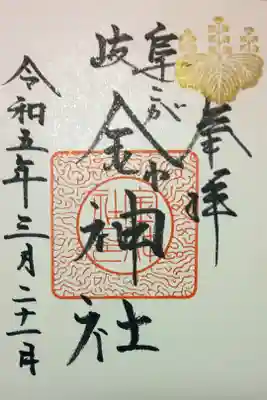 奉拝
岐阜
こがね
金神社
令和五年三月二十一日